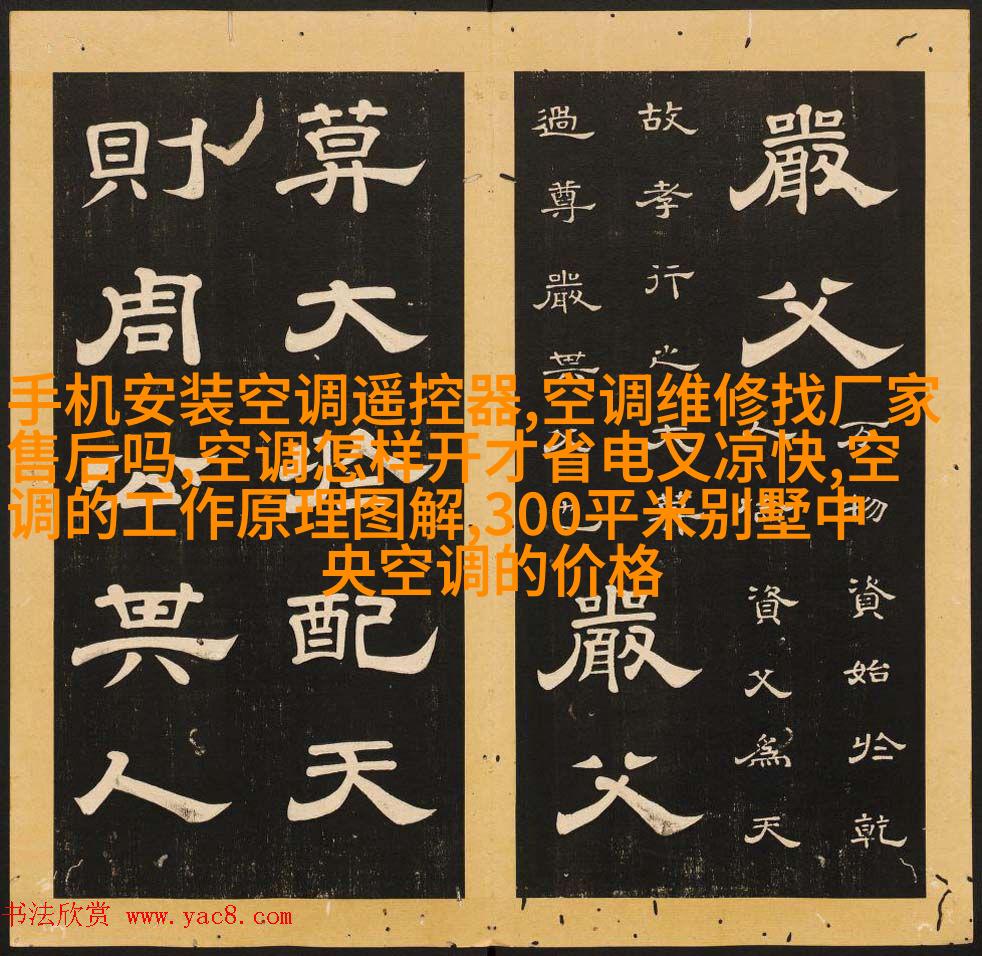 手机安装空调遥控器,空调维修找厂家
售后吗,空调怎样开才省电又凉快,空
调的工作原理图解,300平米别墅中
央空调的价格
嚴父
万物資始於乾
人倫資父為天
故孝行之大莫
過尊嚴其父也
嚴父
莫大於配天
則周公其人
书法欣赏 www.yac8.com